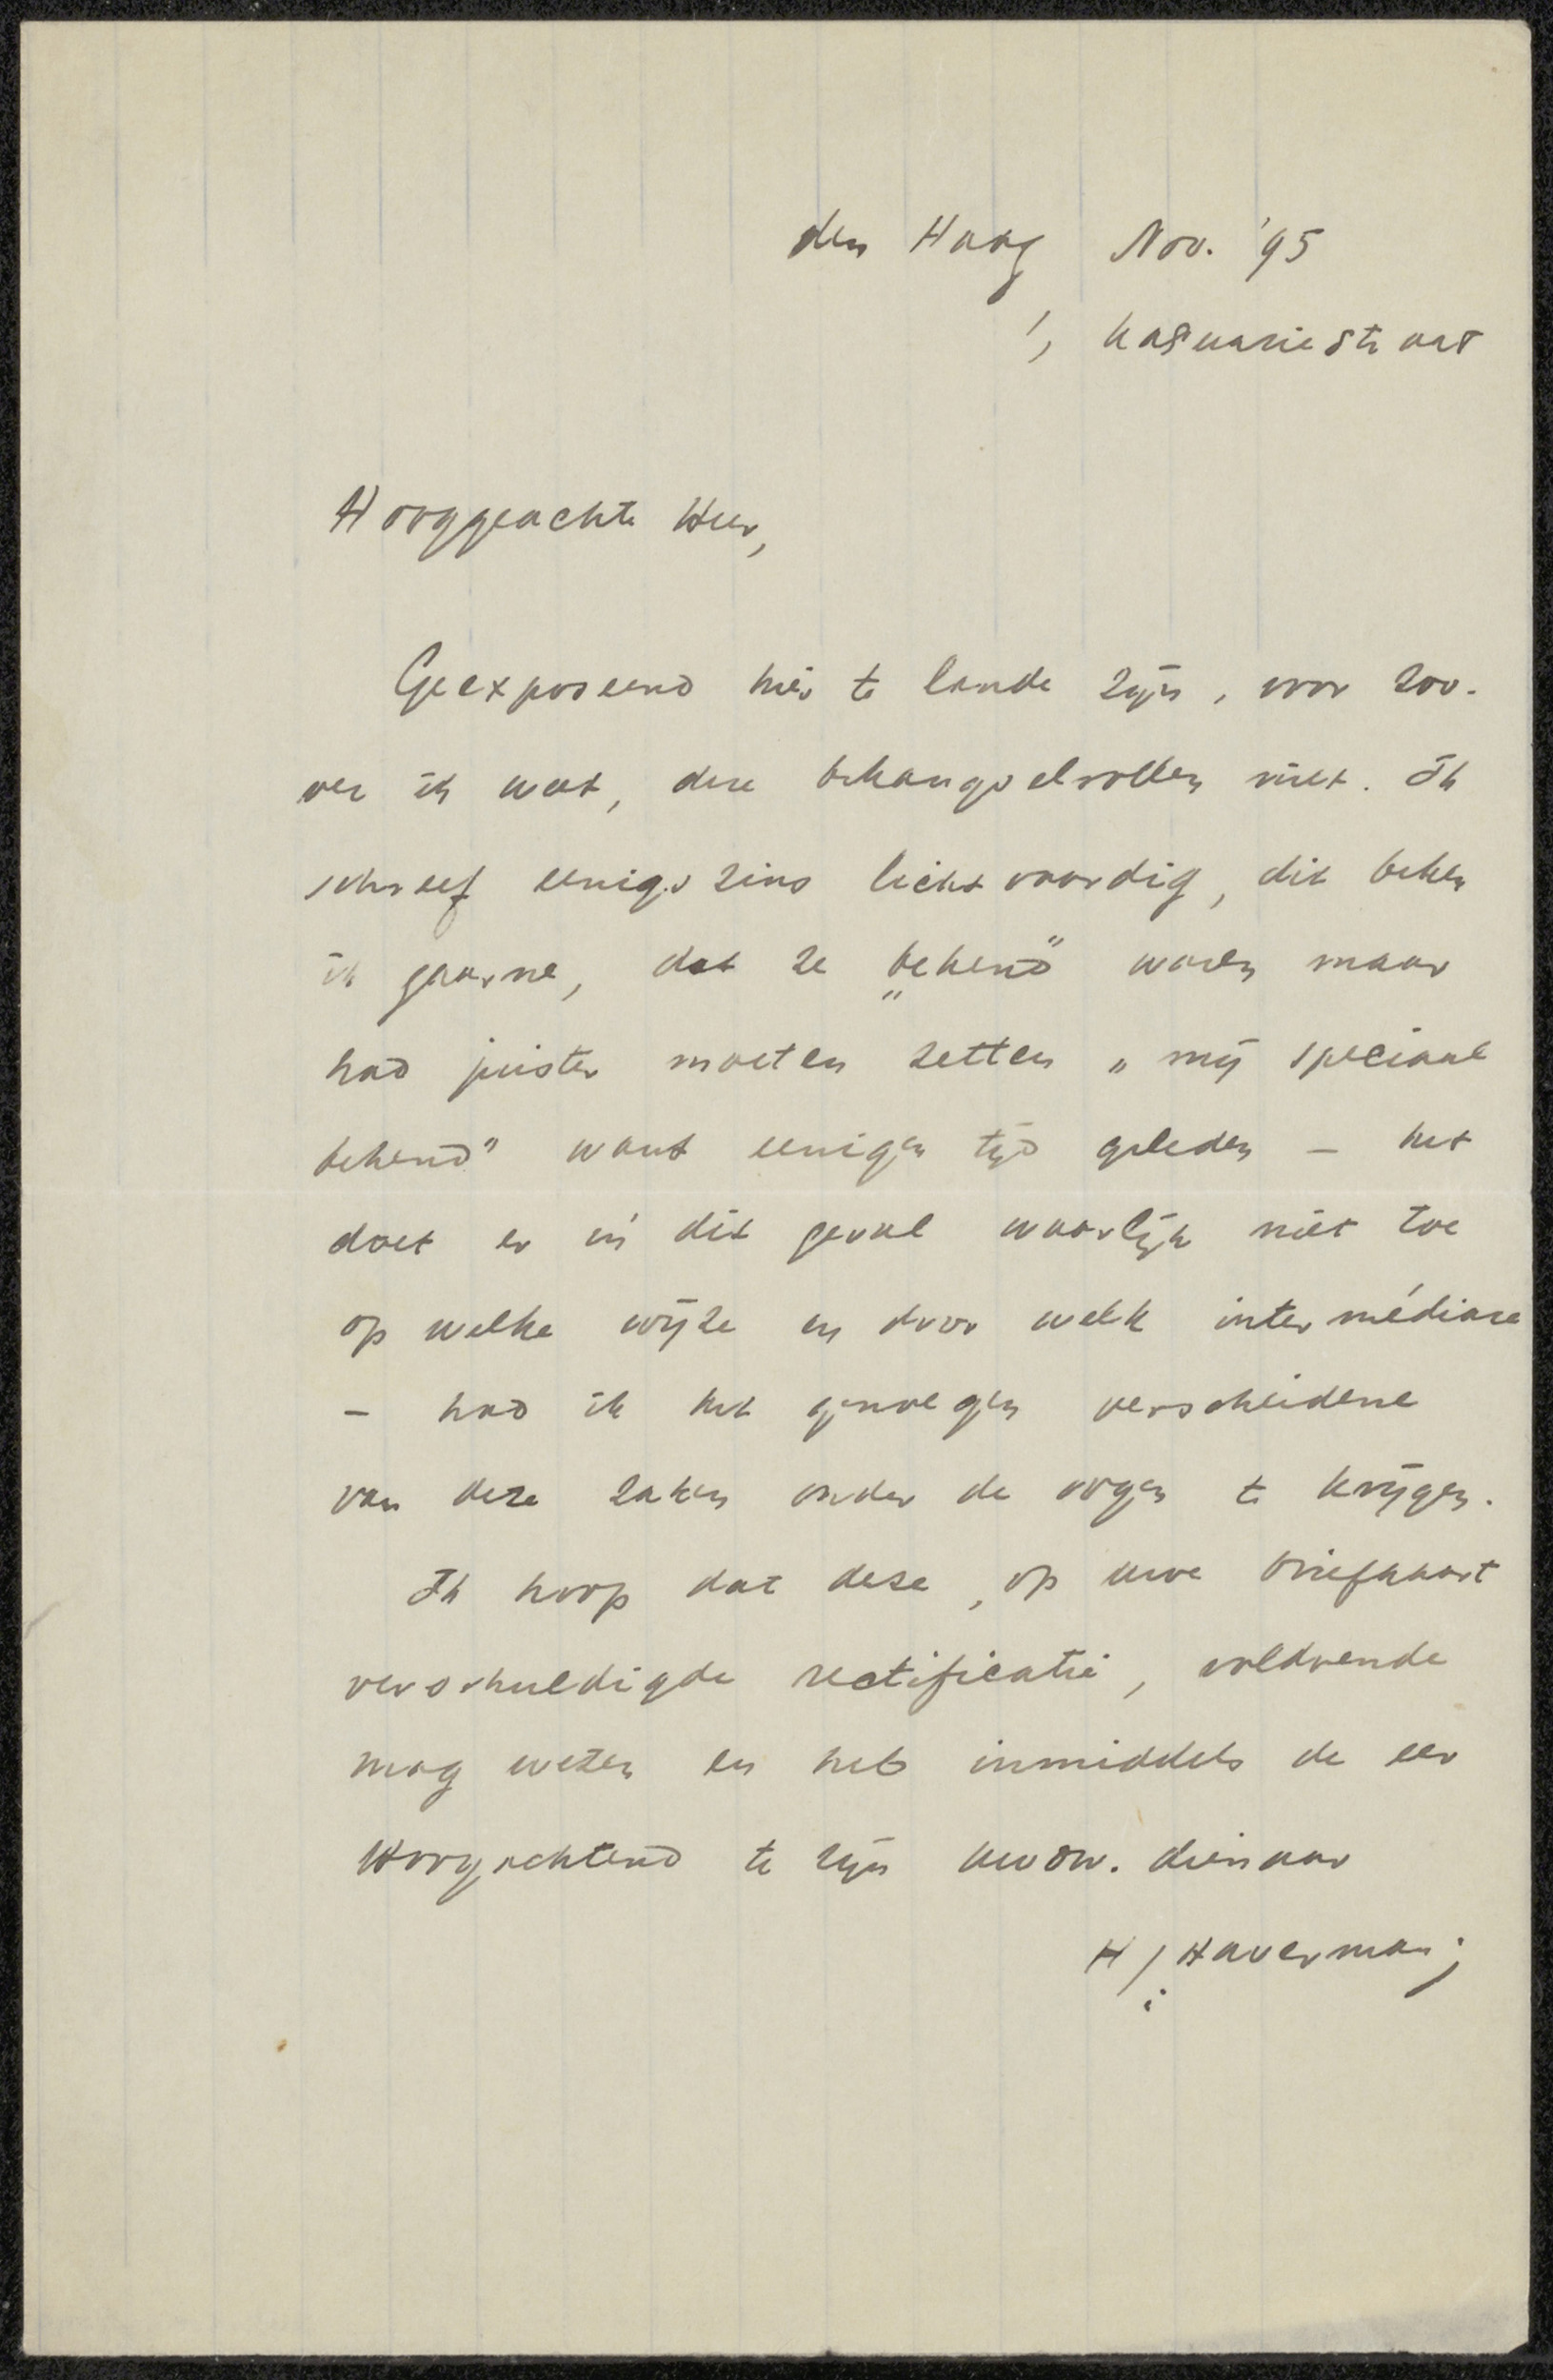 den Haag Nov. '95
1, Kasuariestraat
Hooggeachte Heer,
Geexposeerd hier te lande zijn, voor zoo-
ver ik weet, deze behangselrollen niet. Ik
schreef eenigszins lichtvaardig, dit beken
ik gaarne, dat ze „bekend” waren maar
had juister moeten zetten „mij speciaal
bekend” want eenigen tijd geleden – het
doet er in dit geval waarlijk niet toe
op welke wijze en door welk intermédiare
– had ik het genoegen verscheidene
van deze zaken onder de oogen te krijgen.
Ik hoop dat deze, op uwe briefkaart
verschuldigde rectificatie, voldoende
mag weten en heb inmiddels de eer
Hoogachtend te zijn uw dw. dienaar
H J Haverman